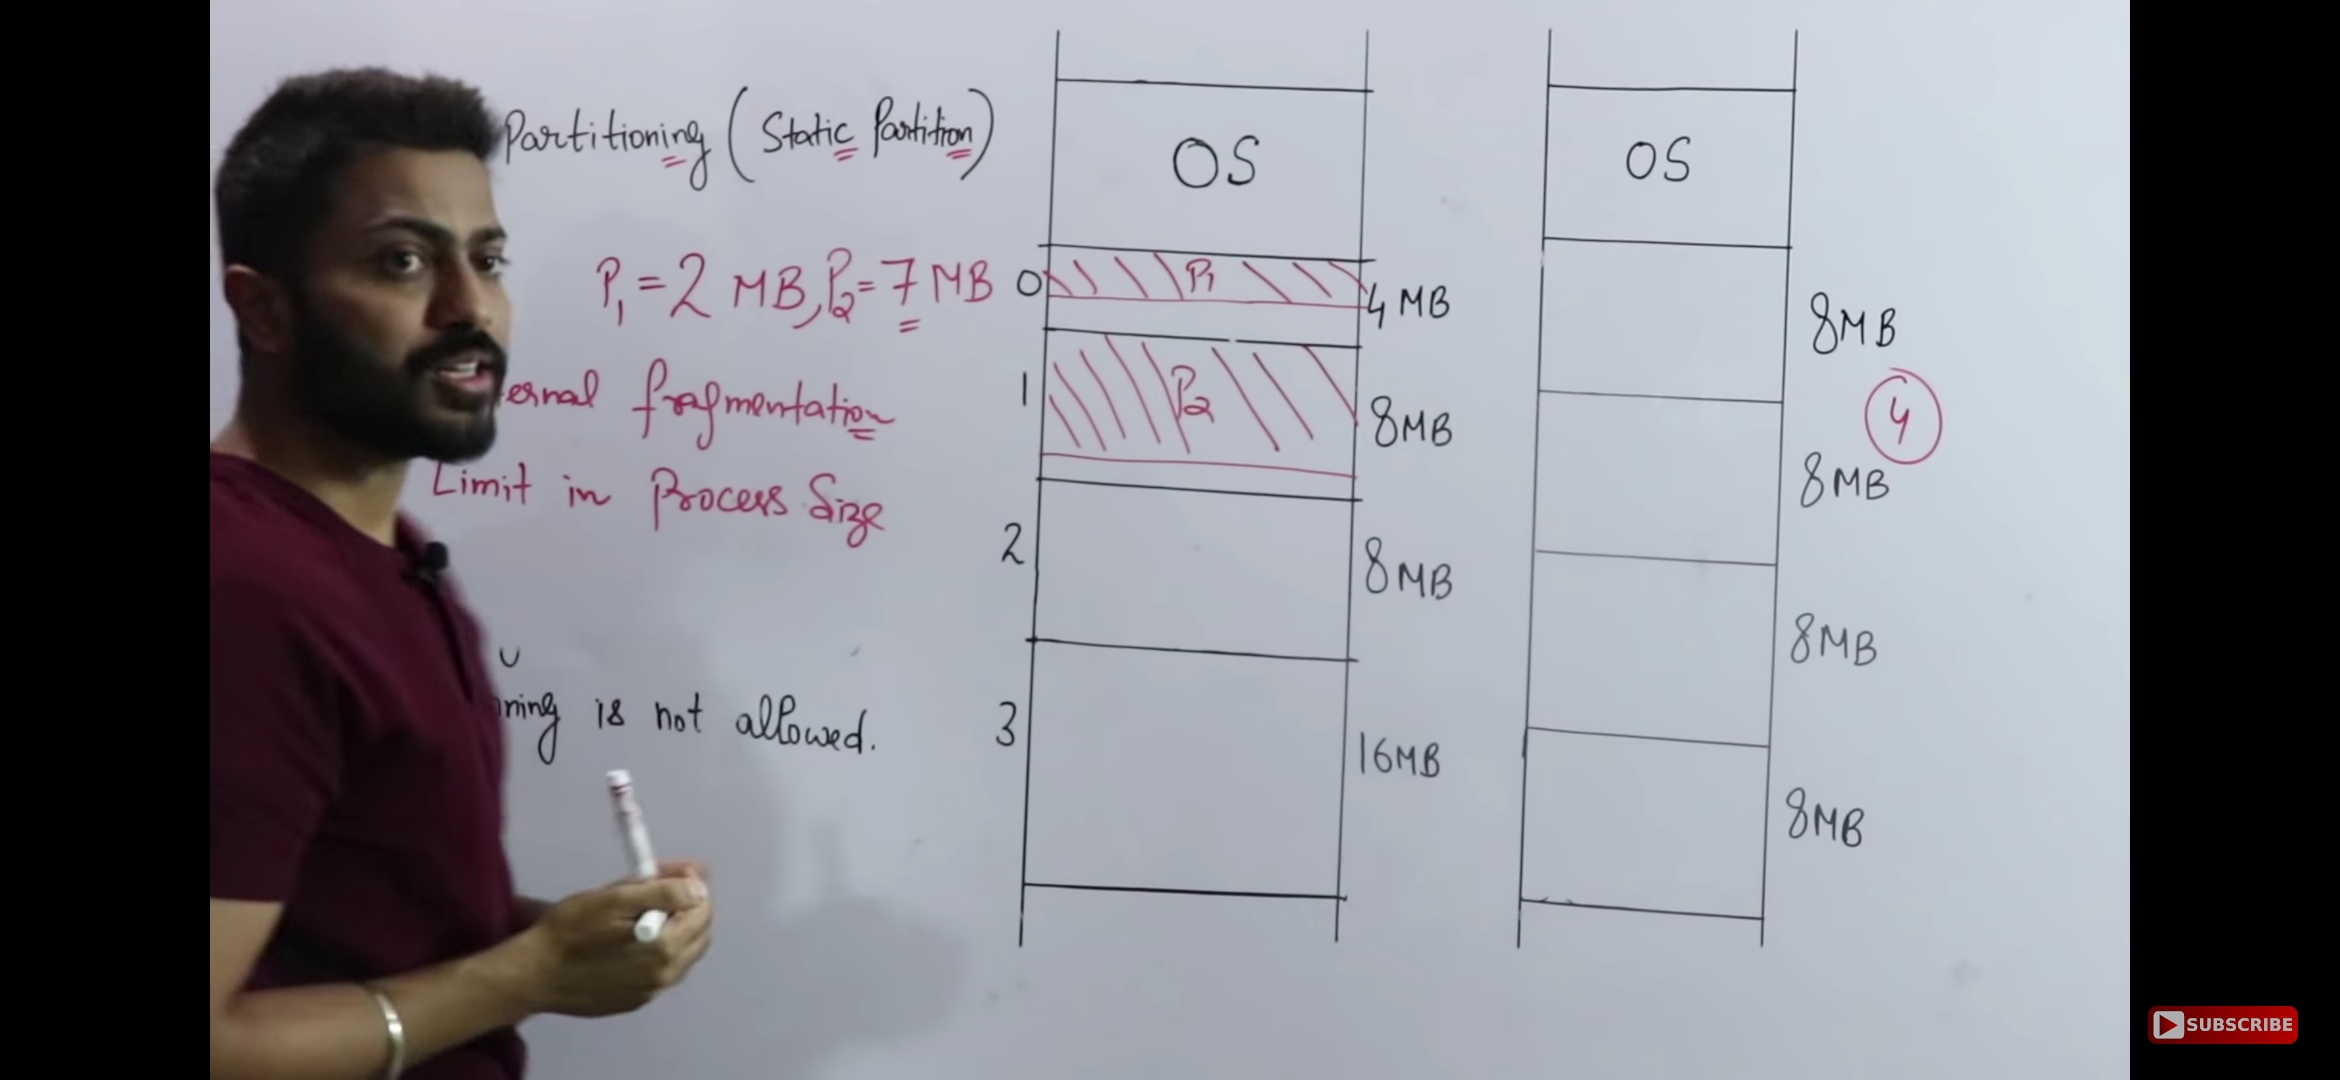 Partitioning (Static Partition)
P1 = 2 MB, P2 = 7 MB
ernal fragmentation
Limit in Process Size
ning is not allowed.
OS
0 P1 4 MB
1 P2 8MB
2 8MB
3 16MB
OS
8MB
4
8MB
8MB
8MB
SUBSCRIBE